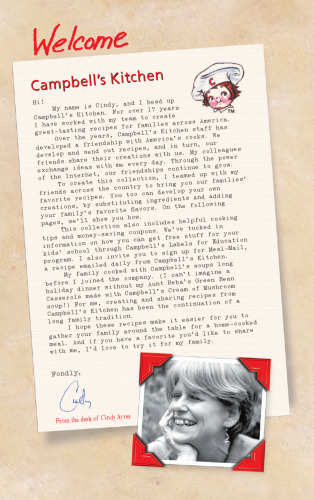 Welcome
Campbell's Kitchen
Hi!
My name is Cindy, and I head up
Campbell's Kitchen. For over 17 years
I have worked with my team to create
great-tasting recipes for families across America.
Over the years, Campbell's Kitchen staff has
developed a friendship with America's cooks. We
develop and send out recipes, and in turn, our
friends share their creations with us. My colleagues
exchange ideas with me every day. Through the power
of the Internet, our friendships continue to grow.
To create this collection, I teamed up with my
friends across the country to bring you our families'
favorite recipes. You too can develop your own
creations, by substituting ingredients and adding
your family's favorite flavors. On the following
pages, we'll show you how.
This collection also includes helpful cooking
tips and money-saving coupons. We've tucked in
information on how you can get free stuff for your
kids' school through Campbell's Labels for Education
program. I also invite you to sign up for Meal-Mail,
a recipe emailed daily from Campbell's Kitchen.
My family cooked with Campbell's soups long
before I joined the company. (I can't imagine a
holiday dinner without my Aunt Reba's Green Bean
Casserole made with Campbell's Cream of Mushroom
soup!) For me, creating and sharing recipes from
Campbell's Kitchen has been the continuation of a
long family tradition.
I hope these recipes make it easier for you to
gather your family around the table for a home-cooked
meal. And if you have a favorite you'd like to share
with me, I'd love to try it for my family.
Fondly,
Cindy
From the desk of Cindy Ayers
TM